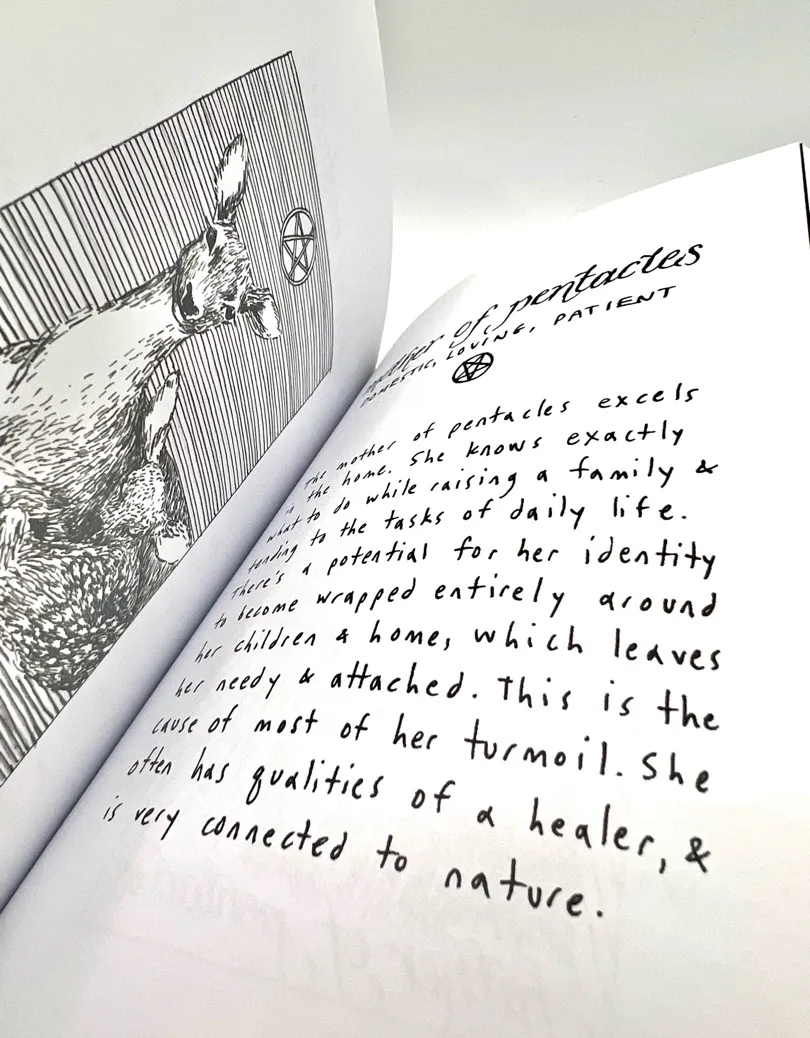 mother of pentacles
DOMESTIC, LOVING, PATIENT
The mother of pentacles excels
in the home. She knows exactly
what to do while raising a family &
tending to the tasks of daily life.
There's a potential for her identity
to become wrapped entirely around
her children & home, which leaves
her needy & attached. This is the
cause of most of her turmoil. She
often has qualities of a healer, &
is very connected to nature.